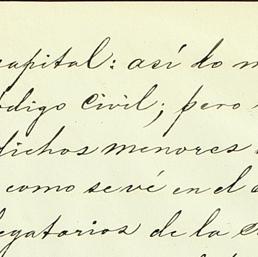 capital: así lo m
ódigo civil; pero
dichos menores
como se vé en el a
legatarios de la